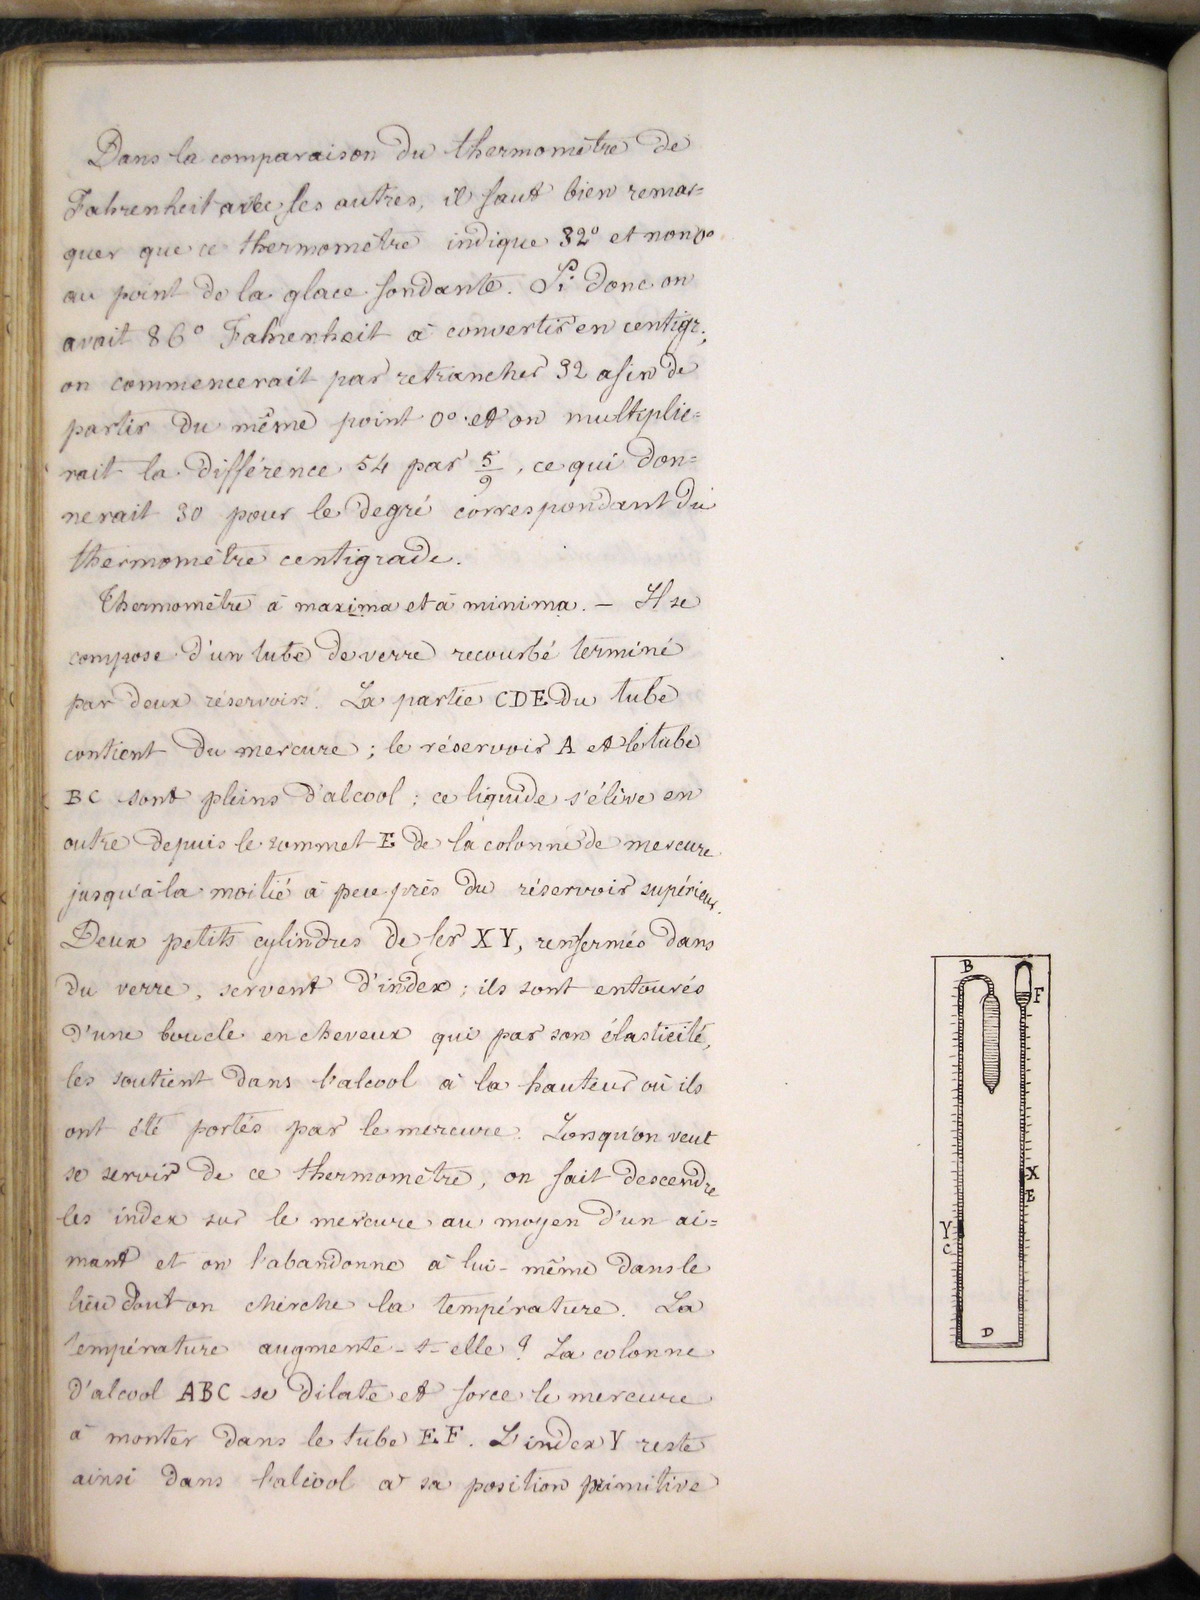 Dans la comparaison du thermomètre de
Fahrenheit avec les autres, il faut bien remar=
quer que ce thermomètre indique 32° et non 0°
au point de la glace fondante. Si donc on
avait 86° Fahrenheit à convertir en centigr.,
on commencerait par retrancher 32 afin de
partir du même point 0° et on multiplie=
rait la différence 54 par 5/9, ce qui don=
nerait 30 pour le degré correspondant du
thermomètre centigrade.
Thermomètre à maxima et à minima. — Il se
compose d'un tube de verre recourbé terminé
par deux réservoirs. La partie CDE du tube
contient du mercure ; le réservoir A et le tube
BC sont pleins d'alcool ; ce liquide s'élève en
outre depuis le sommet E de la colonne de mercure
jusqu'à la moitié à peu près du réservoir supérieur.
Deux petits cylindres de fer XY, renfermés dans
du verre, servent d'index ; ils sont entourés
d'une boucle en cheveux qui par son élasticité,
les soutient dans l'alcool à la hauteur où ils
ont été portés par le mercure. Lorsqu'on veut
se servir de ce thermomètre, on fait descendre
les index sur le mercure au moyen d'un ai=
mant et on l'abandonne à lui-même dans le
lieu dont on cherche la température. La
température augmente-t-elle ? La colonne
d'alcool ABC se dilate et force le mercure
à monter dans le tube EF. L'index Y reste
ainsi dans l'alcool à sa position primitive
B
F
X
E
Y
C
D